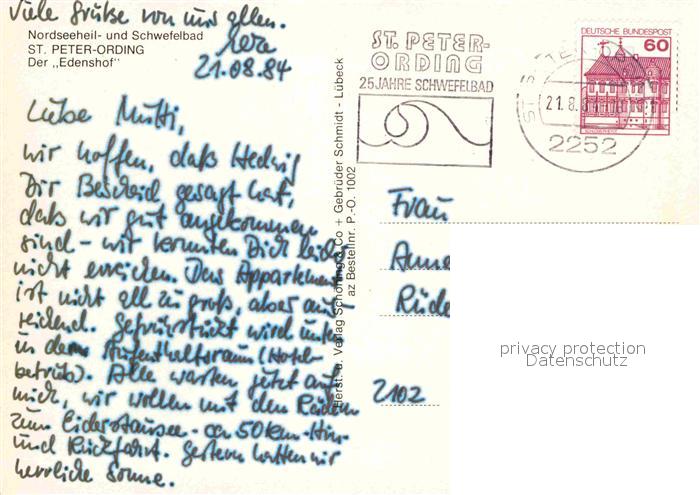 Viele Grüße von uns allen.
Nordseeheil- und Schwefelbad
ST. PETER-ORDING
Der „Edenshof"
21.08.84
Liebe Mutti,
wir hoffen, daß Hedwig
Dir Bescheid gesagt hat,
daß wir gut angekommen
sind – wir konnten Dich leider
nicht erreichen. Das Appartement
ist nicht all zu groß, aber aus-
reichend. Gefrühstückt wird unten
in dem Aufenthaltsraum (Hotel-
betrieb). Alle warten jetzt auf
mich, wir wollen mit den Rädern
zum Eiderstausee - ca 50 km - Hin-
und Rückfahrt. Gestern hatten wir
herrliche Sonne.
Herst. u. Verlag Schöning & Co + Gebrüder Schmidt - Lübeck
az Bestellnr. P.-O. 1002
ST. PETER-
ORDING
25 JAHRE SCHWEFELBAD
DEUTSCHE BUNDESPOST
60
21.8.8
2252
Frau
Anne
Rüde
2102
privacy protection
Datenschutz